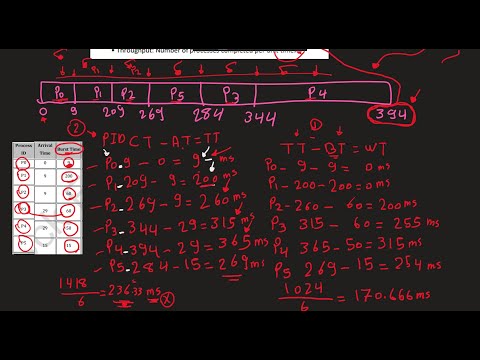 • Throughput: Number of processes completed per unit time.
P1 P2
P0 P1 P2 P5 P3 P4
0 9 209 269 284 344 394
② ①
PID CT - AT = TT
TT - BT = WT
P0 - 9 - 0 = 9 ms
P0 - 9 - 9 = 0 ms
P1 - 209 - 9 = 200 ms
P1 - 200 - 200 = 0 ms
P2 - 269 - 9 = 260 ms
P2 - 260 - 60 = 200
P3 - 344 - 29 = 315 ms
P3 315 - 60 = 255 ms
P4 - 394 - 29 = 365 ms
P4 365 - 50 = 315 ms
P5 - 284 - 15 = 269 ms
P5 269 - 15 = 254 ms
1418/6 = 236.33 ms
1024/6 = 170.666 ms
Process ID Arrival Time Burst Time
P0 0
P1 9 200
P2 9 60
P3 29 60
P4 29 50
P5 15 15